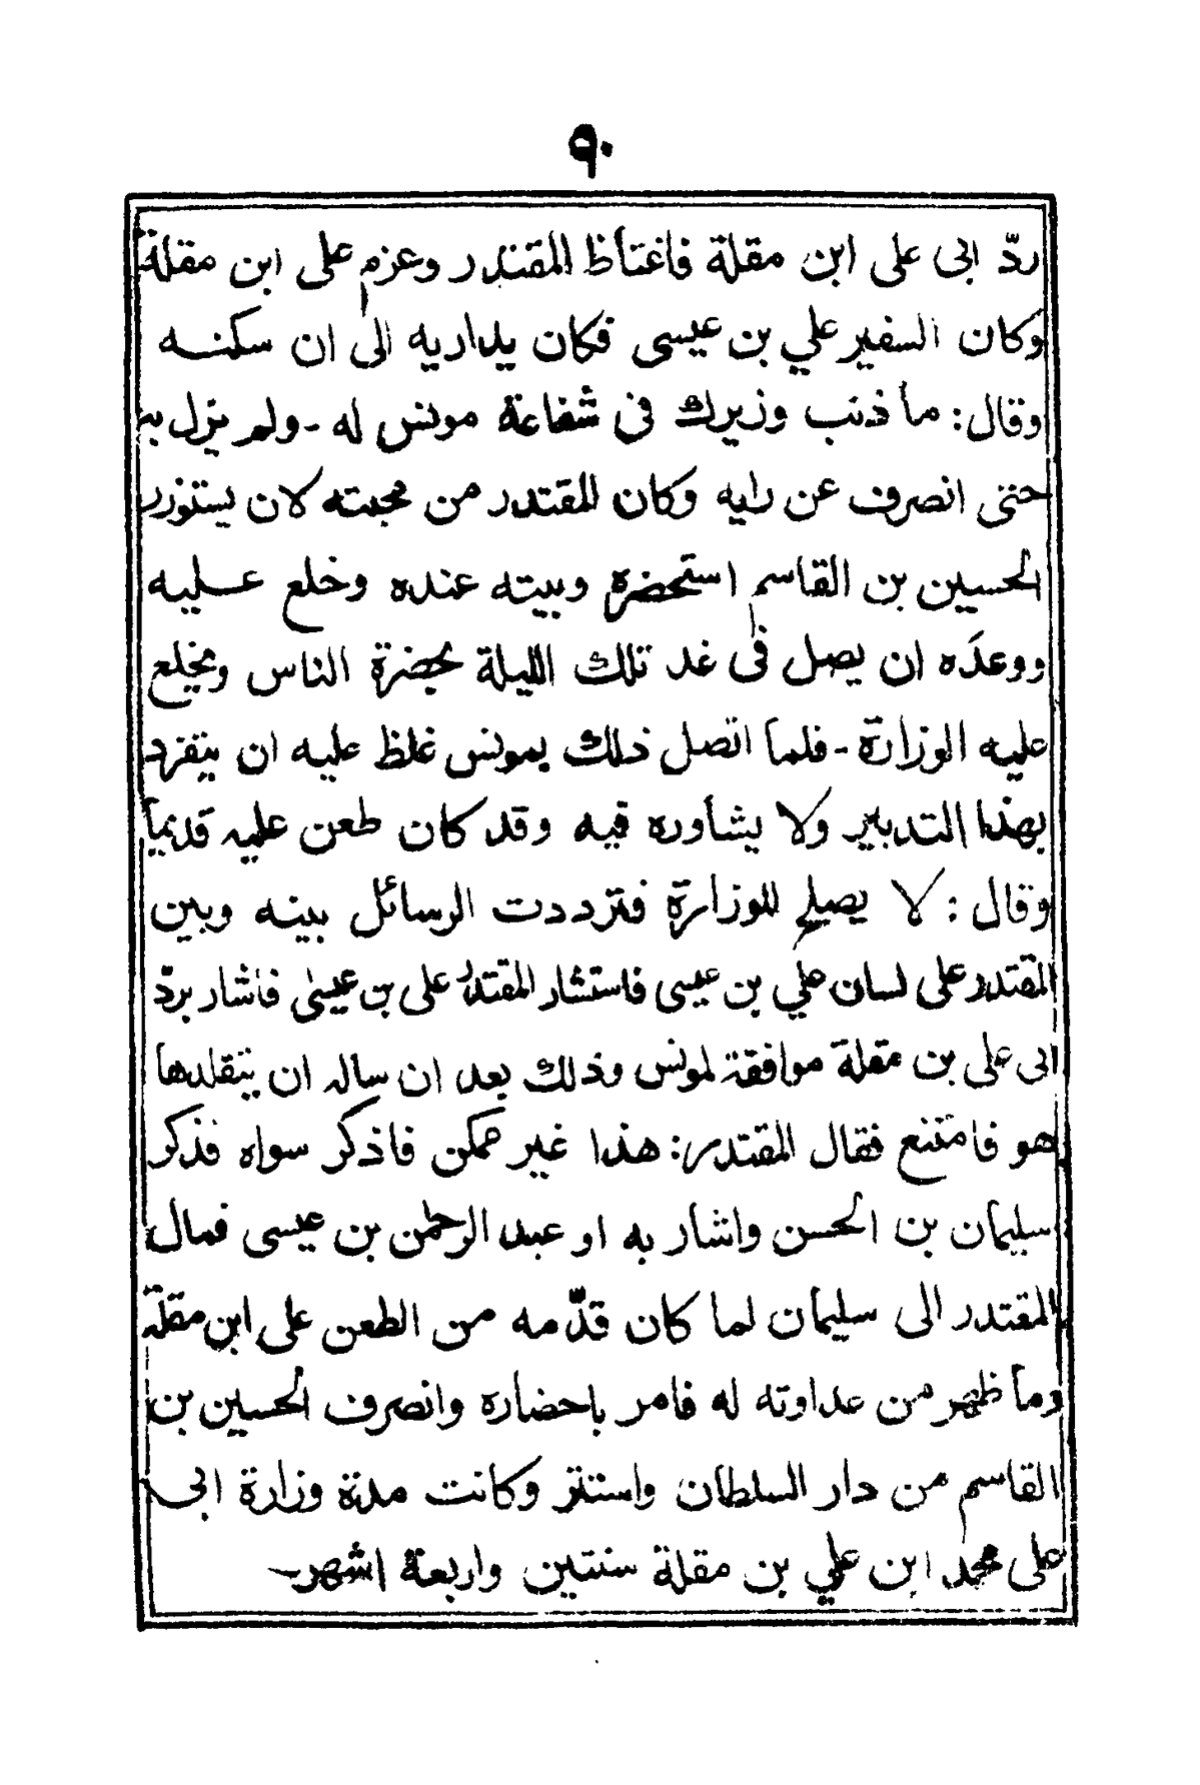 ٩٠
ردّ ابى على ابن مقلة فاغتاظ المقتدر وعزم على ابن مقلة
وكان السفير علي بن عيسى فكان يداريه الى ان سكنه
وقال: ما ذنب وزيرك فى شفاعة مونس له - ولم يزل به
حتى انصرف عن رايه وكان المقتدر من محبته لان يستوزر
الحسين بن القاسم استحضره وبيته عنده وخلع عليه
ووعدَه ان يصل فى غد تلك الليلة بحضرة الناس ويخلع
عليه الوزارة - فلما اتصل ذلك بمونس غلظ عليه ان ينفرد
بهذا التدبير ولا يشاوره فيه وقد كان طعن عليه قديماً
وقال: لا يصلح للوزارة فترددت الرسائل بينه وبين
المقتدر على لسان علي بن عيسى فاستشار المقتدر على بن عيسىٰ فاشار بردّ
ابى على بن مقلة موافقة لمونس وذلك بعد ان ساله ان يتقلدها
هو فامتنع فقال المقتدر: هذا غير ممكن فاذكر سواه فذكر
سليمان بن الحسن واشار به او عبد الرحمٰن بن عيسى فمال
المقتدر الى سليمان لما كان قدّمه من الطعن على ابن مقلة
وما ظهر من عداوته له فامر باحضاره وانصرف الحسين بن
القاسم من دار السلطان واستتر وكانت مدة وزارة ابى
على محمد ابن علي بن مقلة سنتين واربعة اشهر-